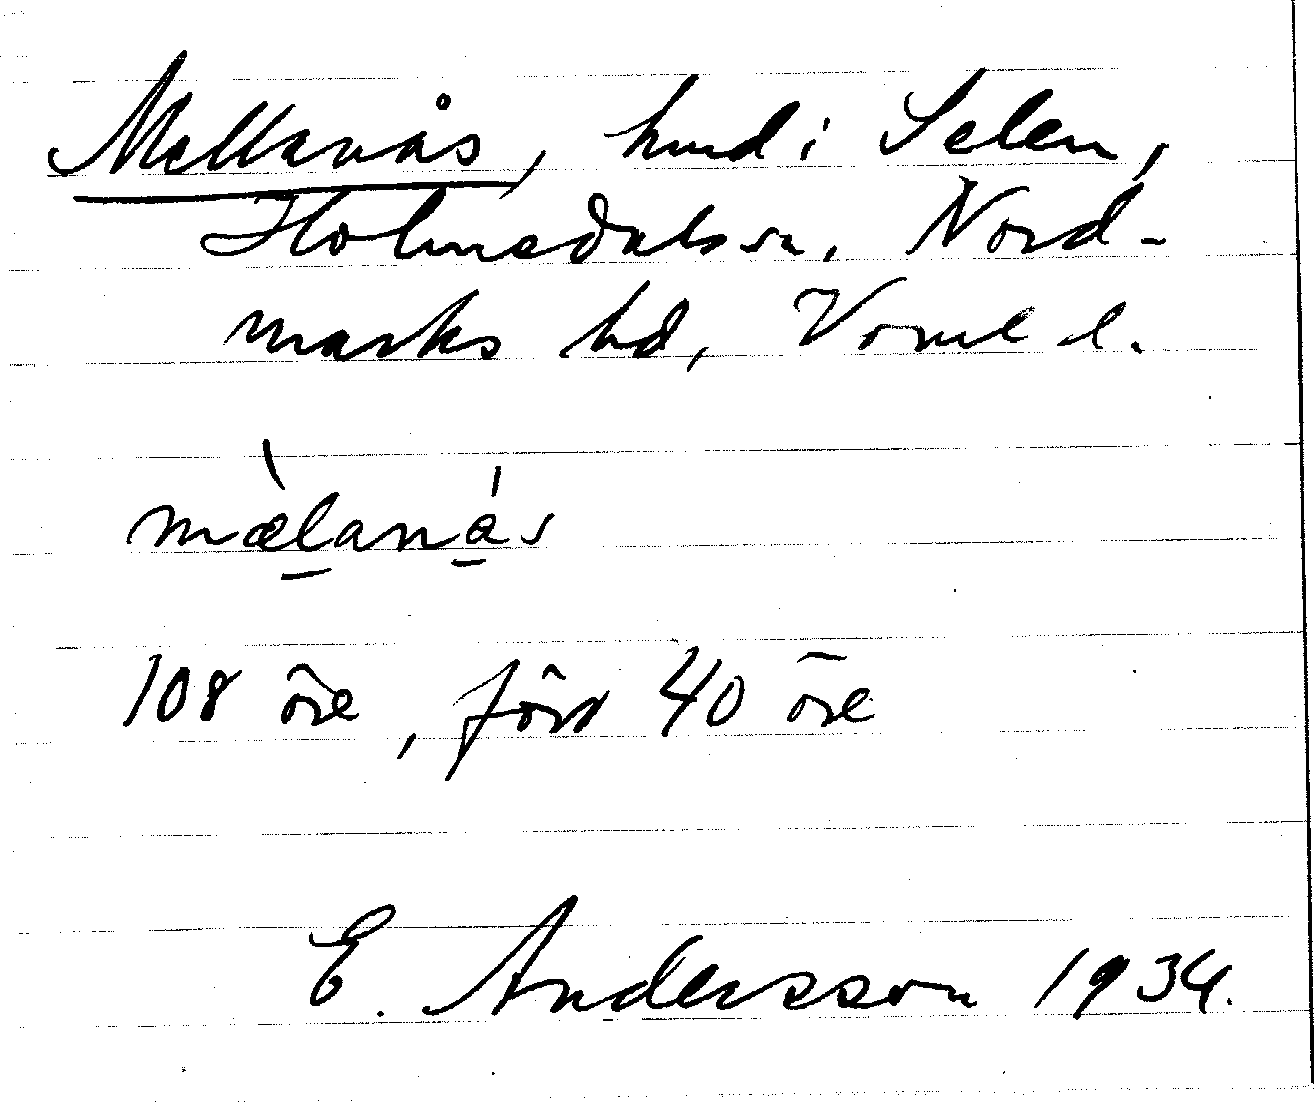 Mellanås, hmd i Selen,
Holmedals sn, Nord-
marks hd, Vrml l.
mæ̀lanás
108 öre, förr 40 öre
E. Andersson 1934.